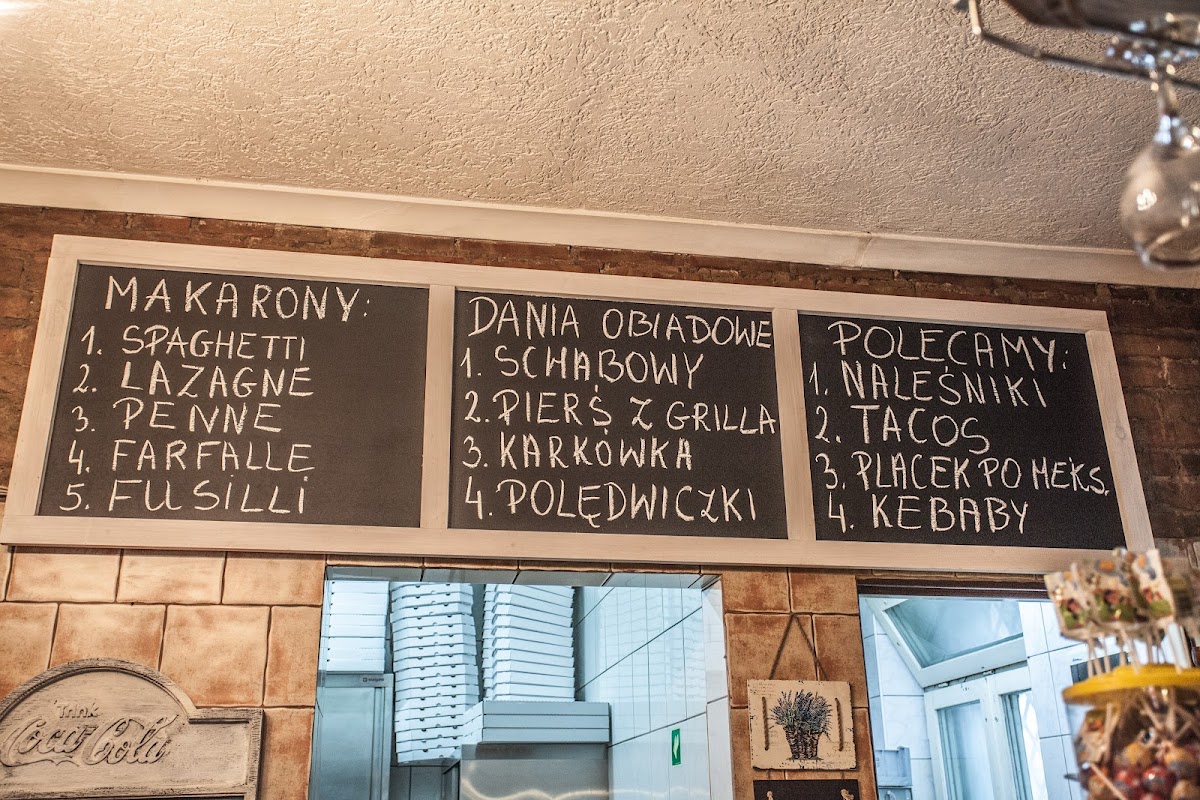 MAKARONY:
1. SPAGHETTI
2. LAZAGNE
3. PENNE
4. FARFALLE
5. FUSILLI
DANIA OBIADOWE
1. SCHABOWY
2. PIERŚ Z GRILLA
3. KARKÓWKA
4. POLĘDWICZKI
POLECAMY:
1. NALEŚNIKI
2. TACOS
3. PLACEK PO MEKS.
4. KEBABY
Coca-Cola